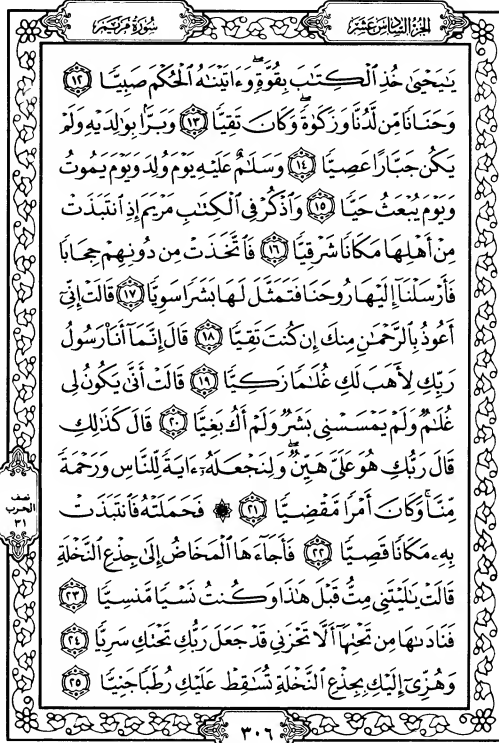 سُورَةُ مَرْيَمَ
الجُزْءُ السَّادِسُ عَشَرَ
يَٰيَحْيَىٰ خُذِ ٱلْكِتَٰبَ بِقُوَّةٍۖ وَءَاتَيْنَٰهُ ٱلْحُكْمَ صَبِيًّا ١٢
وَحَنَانًا مِّن لَّدُنَّا وَزَكَوٰةًۖ وَكَانَ تَقِيًّا ١٣ وَبَرًّۢا بِوَٰلِدَيْهِ وَلَمْ
يَكُن جَبَّارًا عَصِيًّا ١٤ وَسَلَٰمٌ عَلَيْهِ يَوْمَ وُلِدَ وَيَوْمَ يَمُوتُ
وَيَوْمَ يُبْعَثُ حَيًّا ١٥ وَٱذْكُرْ فِى ٱلْكِتَٰبِ مَرْيَمَ إِذِ ٱنتَبَذَتْ
مِنْ أَهْلِهَا مَكَانًا شَرْقِيًّا ١٦ فَٱتَّخَذَتْ مِن دُونِهِمْ حِجَابًا
فَأَرْسَلْنَآ إِلَيْهَا رُوحَنَا فَتَمَثَّلَ لَهَا بَشَرًا سَوِيًّا ١٧ قَالَتْ إِنِّىٓ
أَعُوذُ بِٱلرَّحْمَٰنِ مِنكَ إِن كُنتَ تَقِيًّا ١٨ قَالَ إِنَّمَآ أَنَا۠ رَسُولُ
رَبِّكِ لِأَهَبَ لَكِ غُلَٰمًا زَكِيًّا ١٩ قَالَتْ أَنَّىٰ يَكُونُ لِى
غُلَٰمٌ وَلَمْ يَمْسَسْنِى بَشَرٌ وَلَمْ أَكُ بَغِيًّا ٢٠ قَالَ كَذَٰلِكِ
قَالَ رَبُّكِ هُوَ عَلَىَّ هَيِّنٌۖ وَلِنَجْعَلَهُۥٓ ءَايَةً لِّلنَّاسِ وَرَحْمَةً
مِّنَّاۚ وَكَانَ أَمْرًا مَّقْضِيًّا ٢١ ۞ فَحَمَلَتْهُ فَٱنتَبَذَتْ
بِهِۦ مَكَانًا قَصِيًّا ٢٢ فَأَجَآءَهَا ٱلْمَخَاضُ إِلَىٰ جِذْعِ ٱلنَّخْلَةِ
قَالَتْ يَٰلَيْتَنِى مِتُّ قَبْلَ هَٰذَا وَكُنتُ نَسْيًا مَّنسِيًّا ٢٣
فَنَادَىٰهَا مِن تَحْتِهَآ أَلَّا تَحْزَنِى قَدْ جَعَلَ رَبُّكِ تَحْتَكِ سَرِيًّا ٢٤
وَهُزِّىٓ إِلَيْكِ بِجِذْعِ ٱلنَّخْلَةِ تُسَٰقِطْ عَلَيْكِ رُطَبًا جَنِيًّا ٢٥
نصف
الحزب
٣١
٣٠٦